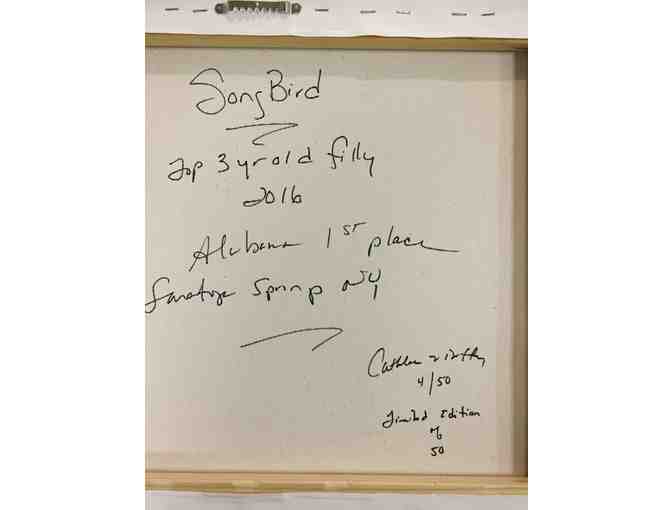 SongBird
Top 3 yr old filly
2016
Alabama 1st place
Saratoga Springs NY
4/50
Limited Edition
of
50